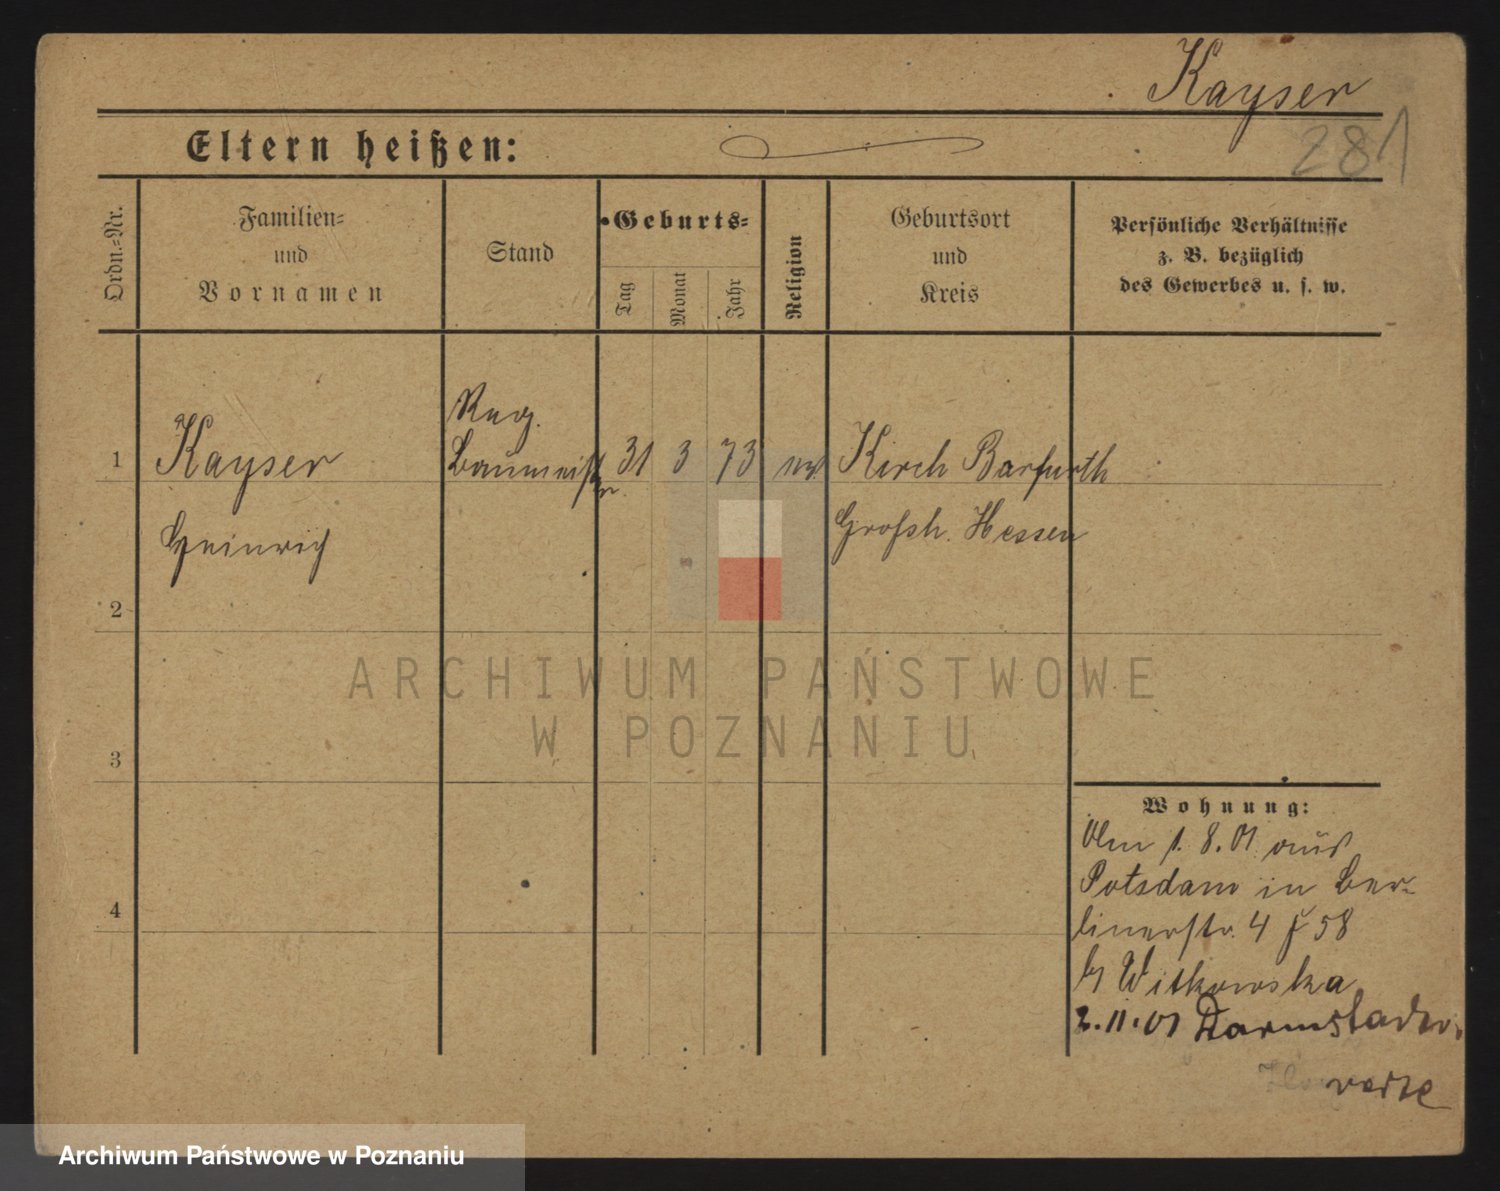 Kayser
281
Eltern heißen:
Ordn.=Nr.
Familien=
und
Vornamen
Stand
Geburts=
Tag
Monat
Jahr
Religion
Geburtsort
und
Kreis
Persönliche Verhältnisse
z. B. bezüglich
des Gewerbes u. s. w.
Reg.
1 Kayser Baumeister 31 3 73 Kirch Barfurth
Heinrich Grossh. Hessen
2
3
4
Wohnung:
Am 1. 8. 01 aus
Potsdam in Ber=
linerstr. 4 58
b/ Witkowska
2.11.01
verte
ARCHIWUM PAŃSTWOWE
W POZNANIU
Archiwum Państwowe w Poznaniu